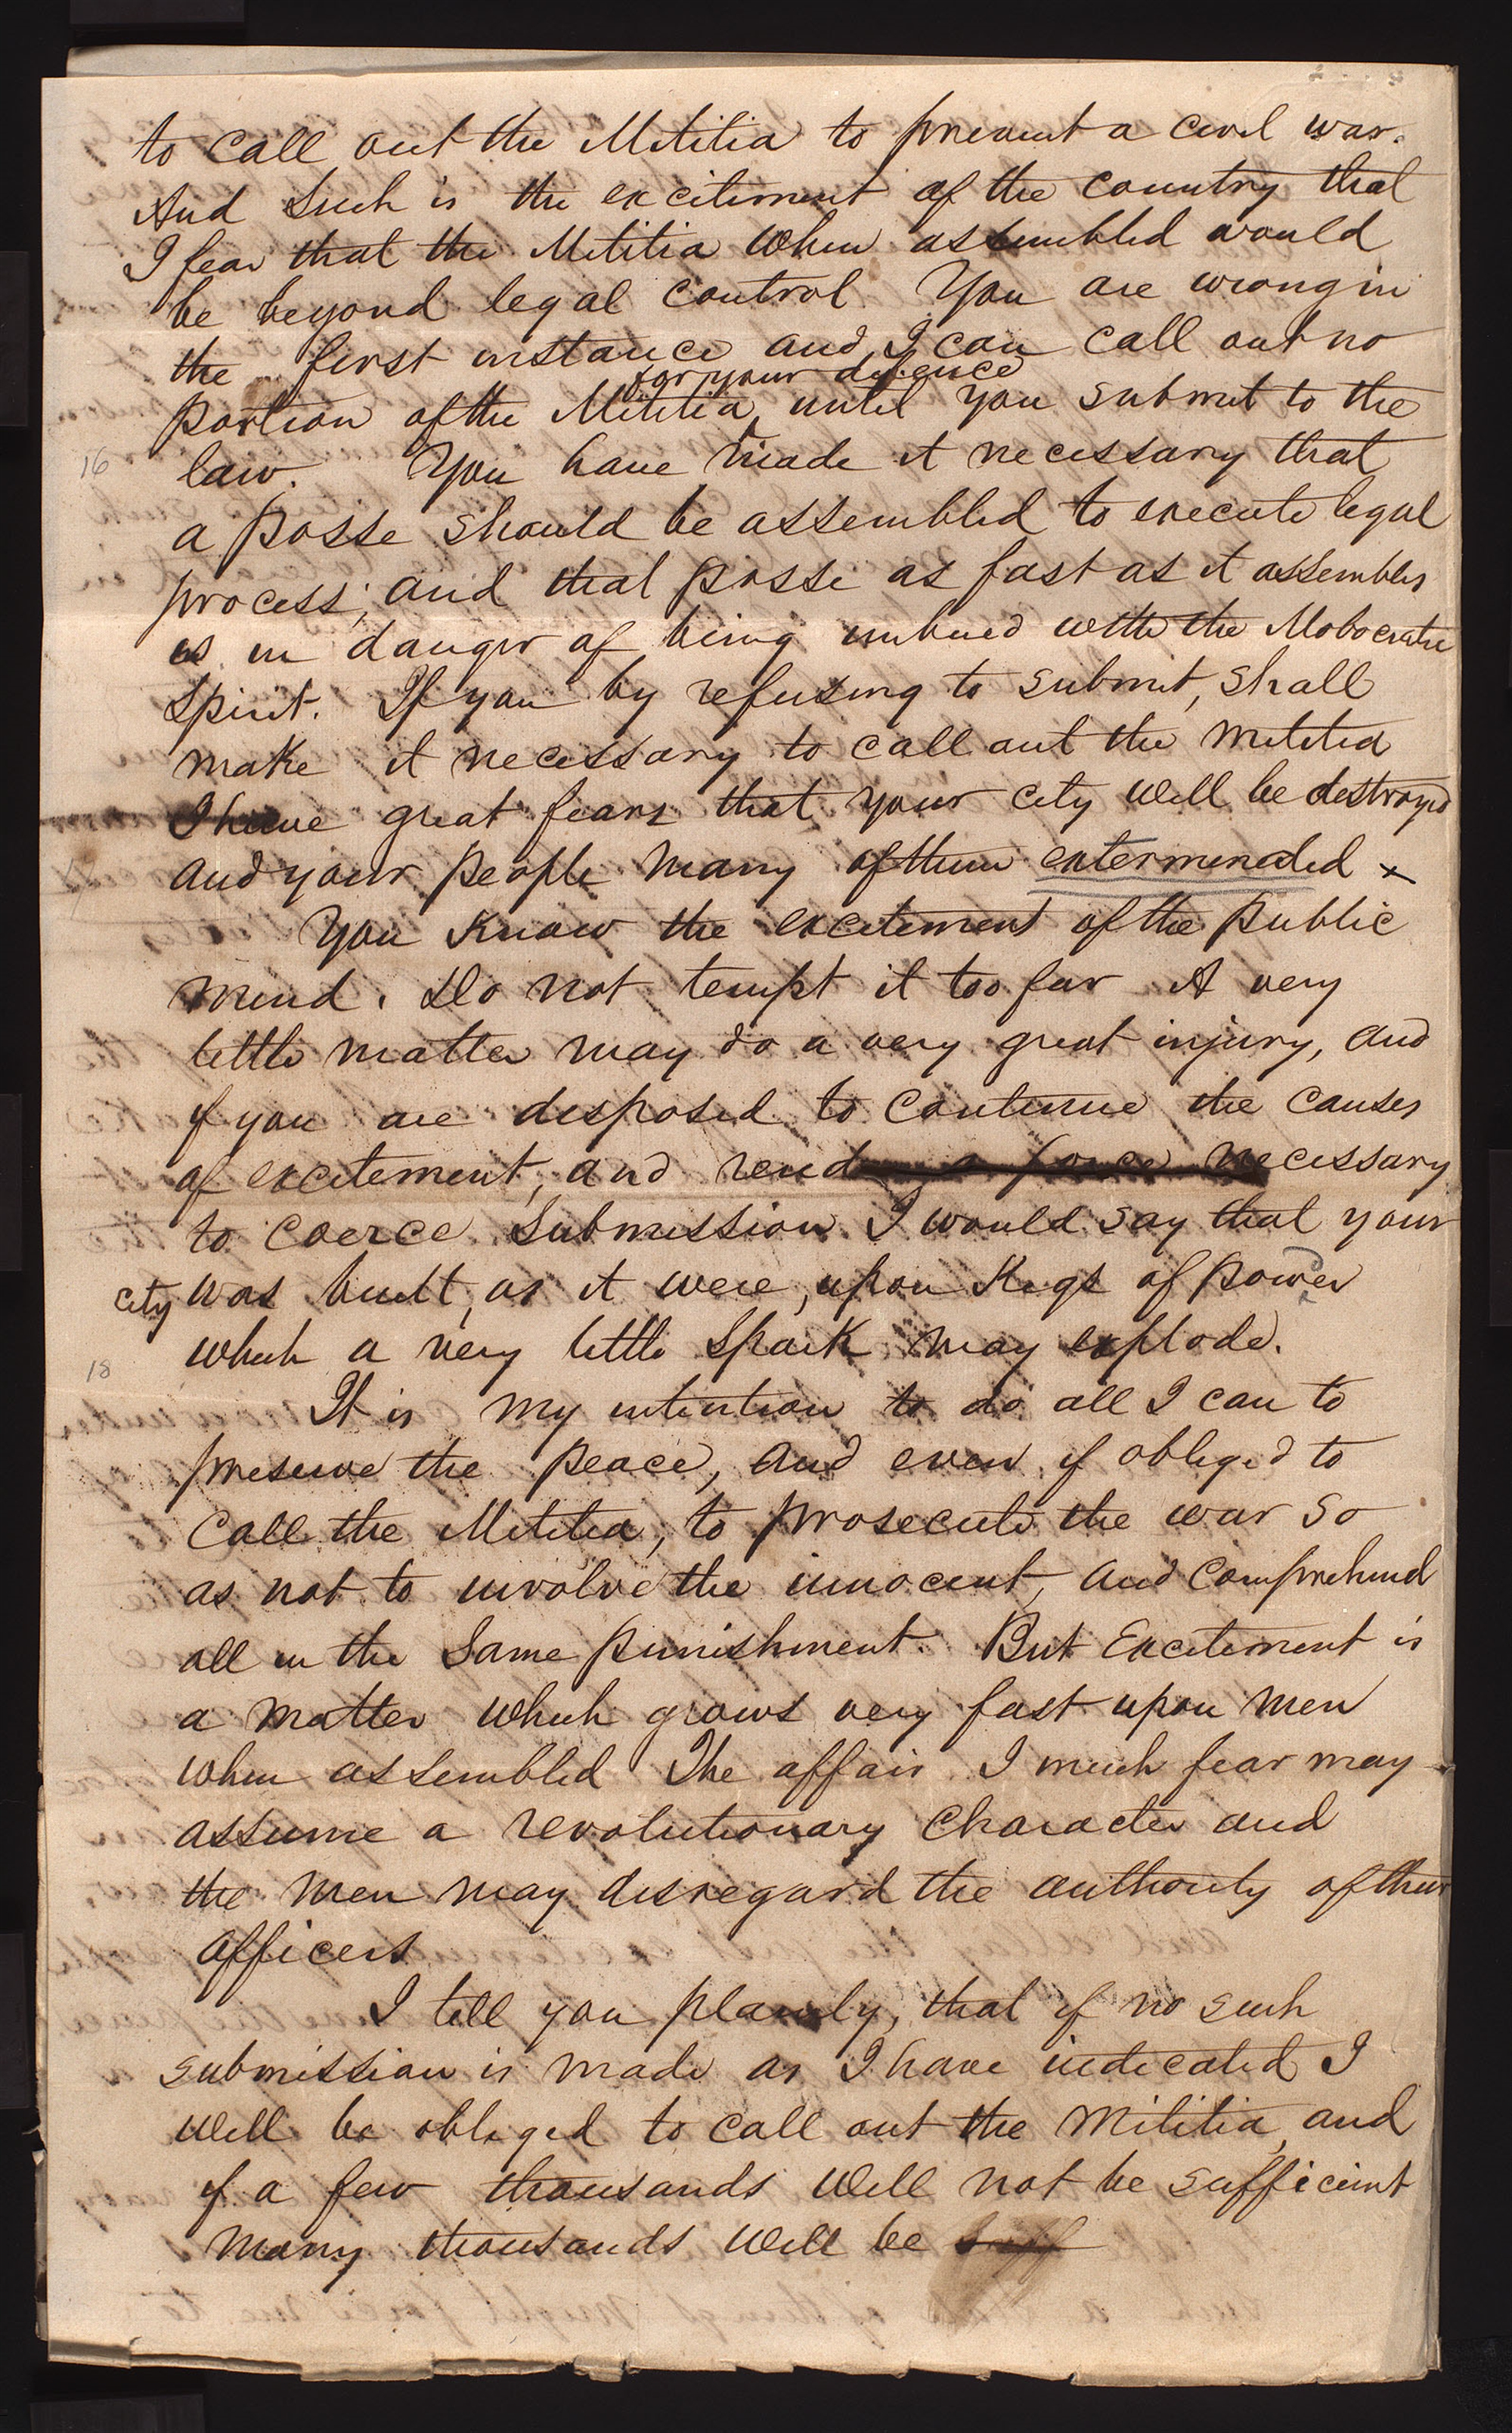 to call out the Militia to prevent a civil war.
And such is the excitement of the country that
I fear that the Militia when assembled would
be beyond legal control. You are wrong in
the first instance and I can call out no
for your defence
portion of the Militia ^ until you submit to the
16
law. You have made it necessary that
a posse should be assembled to execute legal
process; and that posse as fast as it assembles
is in danger of being imbued with the Mobocratic
Spirit. If you by refusing to submit, shall
make it necessary to call out the militia
I have great fears that your city will be destroyed
and your people many of them exterminated x
17
You know the excitement of the public
mind. Do not tempt it too far A very
little matter may do a very great injury, and
if you are disposed to continue the causes
of excitement, and render a force necessary
to coerce submission I would say that your
city was built, as it were, upon Kegs of powder
which a very little spark may explode.
18
It is my intention to do all I can to
preserve the peace, and even, if obliged to
call the Militia, to prosecute the war so
as not to involve the innocent, and comprehend
all in the same punishment. But Excitement is
a matter which grows very fast upon men
when assembled The affair I much fear may
assume a revolutionary character and
the men may disregard the authority of their
officers
I tell you plainly, that if no such
submission is made as I have indicated I
will be obliged to call out the Militia, and
if a few thousands will not be sufficient
many thousands will be suff